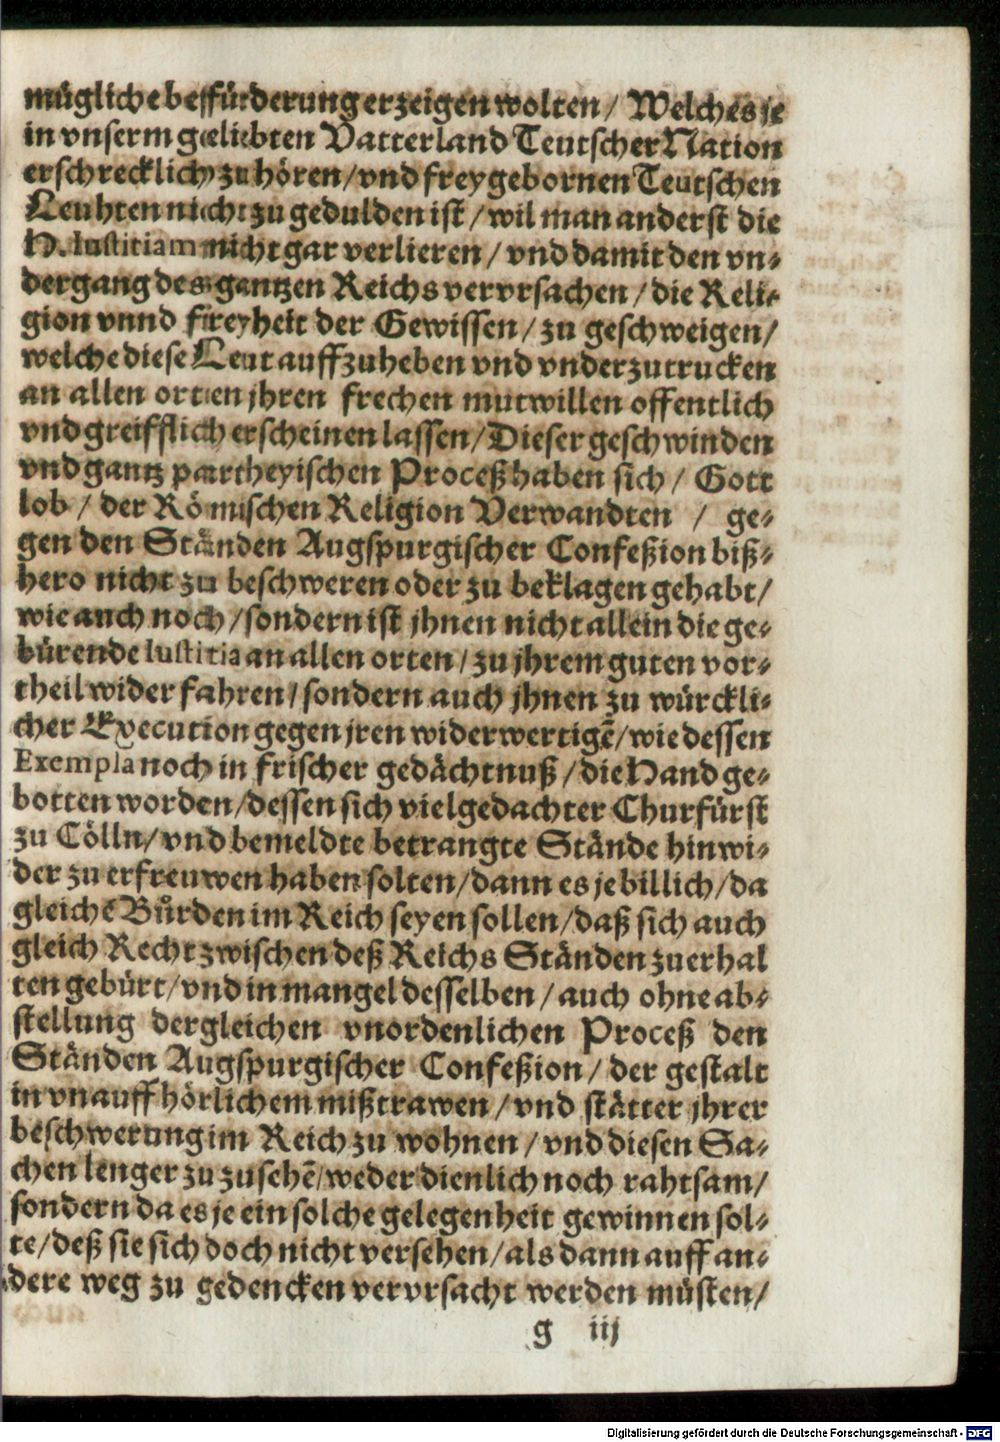 müglichebeffürderung erzeigen wolten / Welches je
in vnserm geliebten Vatterland Teutscher Nation
erschrecklich zu hören / vnd freygebornen Teutschen
Leuhten nicht zu gedulden ist / wil man anderst die
H. Iustitiam nicht gar verlieren / vnd damit den vn⸗
dergang des gantzen Reichs vervrsachen / die Reli⸗
gion vnnd freyheit der Gewissen / zu geschweigen /
welche diese Leut auffzuheben vnd vnderzutrucken
an allen orten jhren frechen mutwillen offentlich
vnd greifflich erscheinen lassen / Dieser geschwinden
vnd gantz partheyischen Proceß haben sich / Gott
lob / der Römischen Religion Verwandten / ge⸗
gen den Ständen Augspurgischer Confeßion biß⸗
hero nicht zu beschweren oder zu beklagen gehabt /
wie auch noch / sondern ist jhnen nicht allein die ge⸗
bürende Iustitia an allen orten / zu jhrem guten vor⸗
theil widerfahren / sondern auch jhnen zu würckli⸗
cher Execution gegen jren widerwertigẽ / wie dessen
Exempla noch in frischer gedächtnuß / die Hand ge⸗
botten worden / dessen sich vielgedachter Churfürst
zu Cölln / vnd bemeldte betrangte Stände hinwi⸗
der zu erfreuwen haben solten / dann es je billich / da
gleichẽ Bürden im Reich seyen sollen / daß sich auch
gleich Recht zwischen deß Reichs Ständen zuerhal
ten gebürt / vnd in mangel desselben / auch ohne ab⸗
stellung dergleichen vnordenlichen Proceß den
Ständen Augspurgischer Confeßion / der gestalt
in vnauffhörlichem mißtrawen / vnd stätter jhrer
beschwerung im Reich zu wohnen / vnd diesen Sa⸗
chen lenger zu zusehẽ / weder dienlich noch rahtsam /
sondern da es je ein solche gelegenheit gewinnen sol⸗
te / deß sie sich doch nicht versehen / als dann auff an⸗
dere weg zu gedencken vervrsacht werden müsten /
g iij
Digitalisierung gefördert durch die Deutsche Forschungsgemeinschaft - DFG